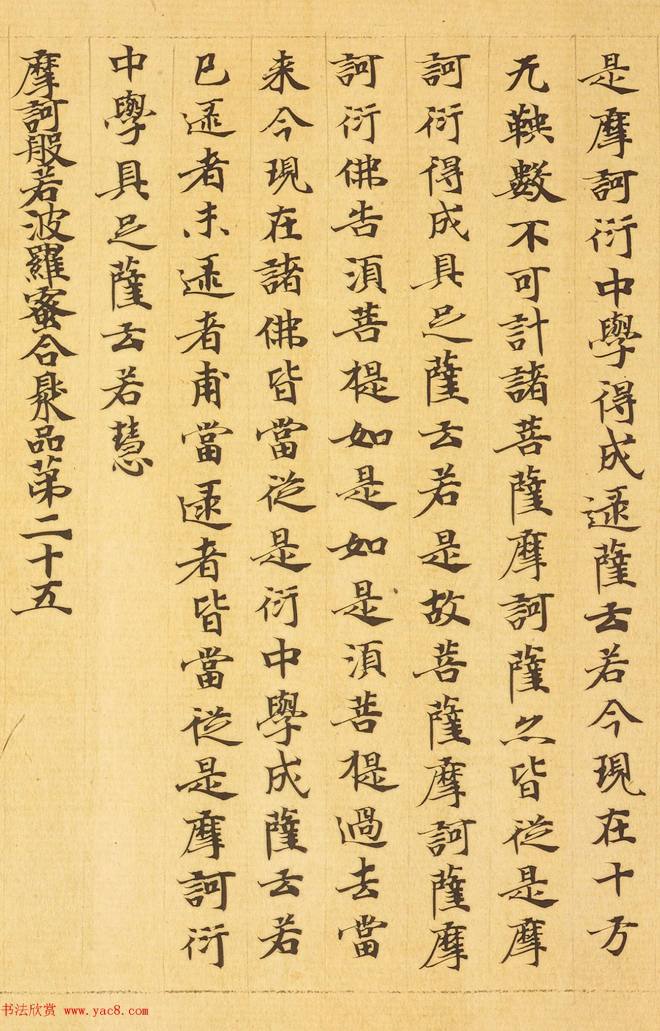 是摩訶衍中學得成逮薩云若今現在十方
无鞅數不可計諸菩薩摩訶薩亦皆從是摩
訶衍得成具足薩云若是故菩薩摩訶薩摩
訶衍佛告須菩提如是如是須菩提過去當
来今現在諸佛皆當從是衍中學成薩云若
已逮者未逮者甫當逮者皆當從是摩訶衍
中學具足薩云若慧
摩訶般若波羅蜜合聚品第二十五
书法欣赏 www.yac8.com